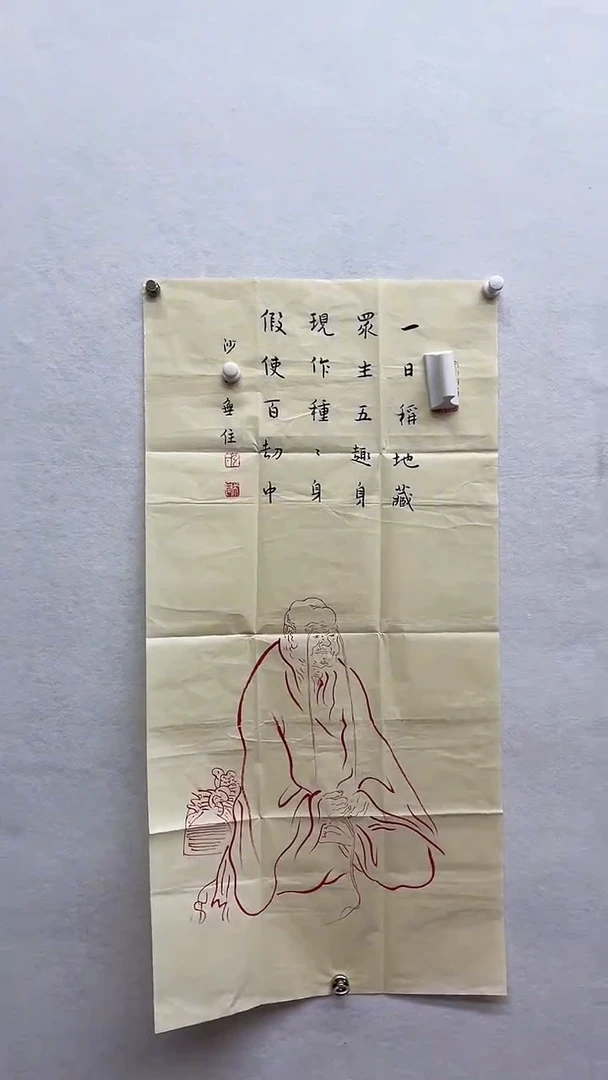 一日稱地藏
眾生五趣身
現作種〻身
假使百劫中
沙 無住